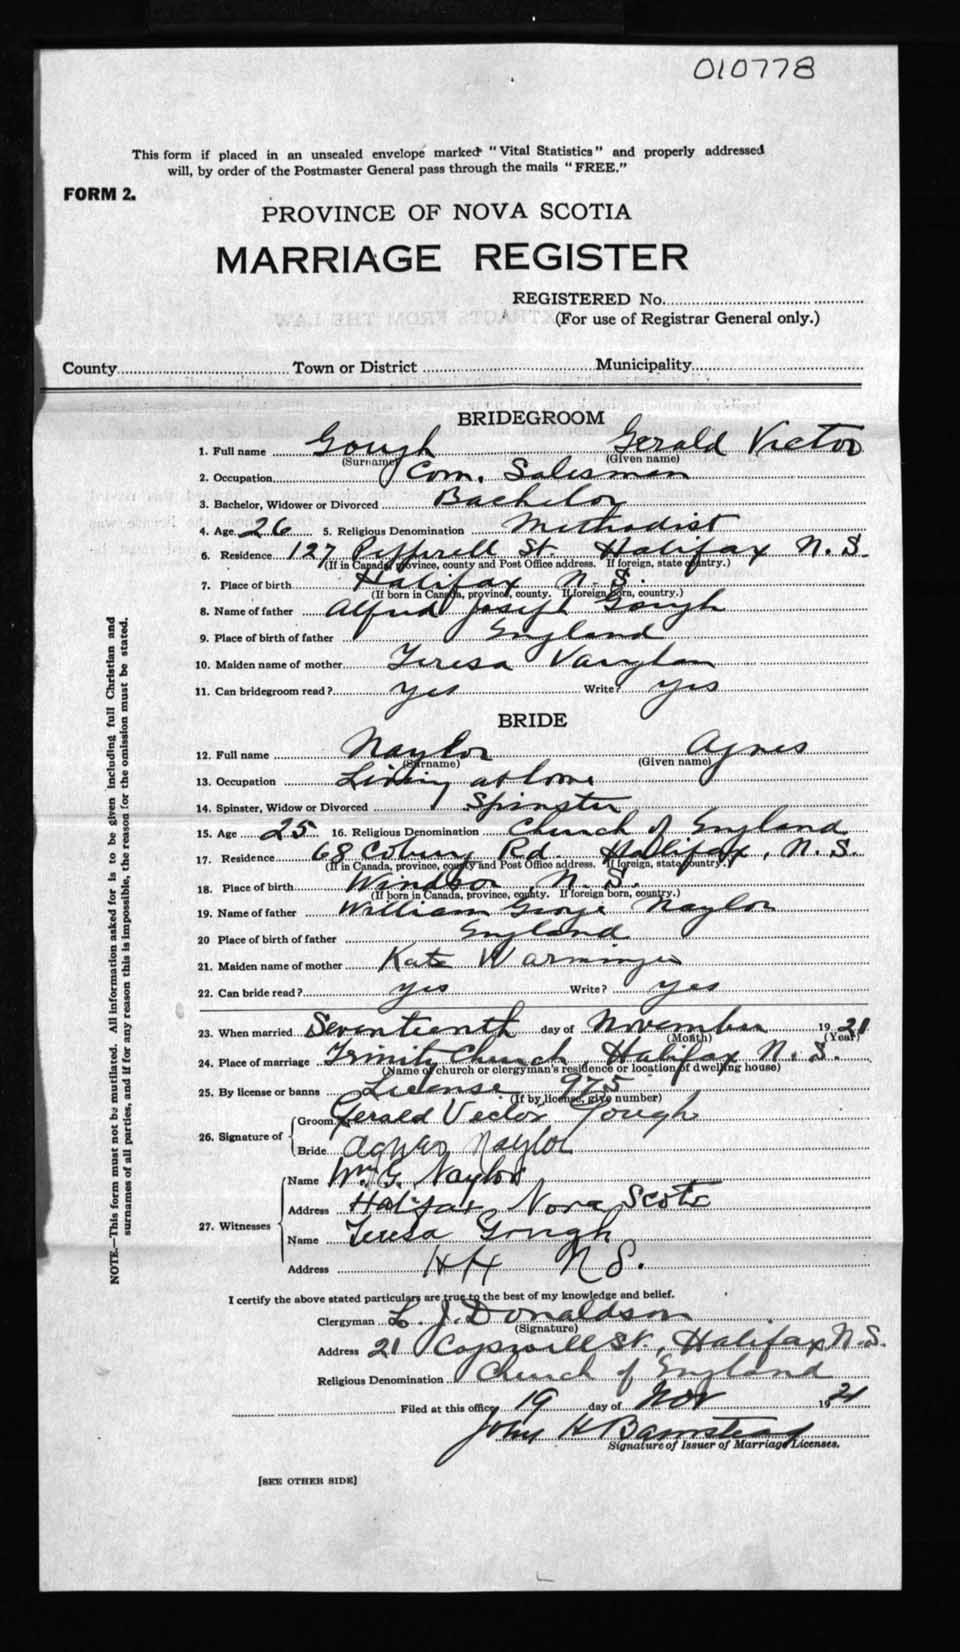 010778
This form if placed in an unsealed envelope marked "Vital Statistics" and properly addressed
will, by order of the Postmaster General pass through the mails "FREE."
FORM 2.
PROVINCE OF NOVA SCOTIA
MARRIAGE REGISTER
REGISTERED No.
(For use of Registrar General only.)
County Town or District Municipality
BRIDEGROOM
1. Full name Gough Gerald Victor
(Surname) (Given name)
2. Occupation Com. Salesman
3. Bachelor, Widower or Divorced Bachelor
4. Age 26 5. Religious Denomination Methodist
6. Residence 127 St. Halifax N.S.
(If in Canada, province, county and Post Office address. If foreign, state country.)
7. Place of birth Halifax N.S.
(If born in Canada, province, county. If foreign born, country.)
8. Name of father Alfred Joseph Gough
9. Place of birth of father England
10. Maiden name of mother Teresa Vaughan
11. Can bridegroom read? yes Write? yes
BRIDE
12. Full name Naylor Agnes
(Surname) (Given name)
13. Occupation Living at home
14. Spinster, Widow or Divorced Spinster
15. Age 25 16. Religious Denomination Church of England
17. Residence 68 Coburg Rd. Halifax, N.S.
(If in Canada, province, county and Post Office address. If foreign, state country.)
18. Place of birth Windsor, N.S.
(If born in Canada, province, county. If foreign born, country.)
19. Name of father William George Naylor
20 Place of birth of father England
21. Maiden name of mother Kate
22. Can bride read? yes Write? yes
23. When married Seventeenth day of November 1921
(Month) (Year)
24. Place of marriage Trinity Church, Halifax N.S.
(Name of church or clergyman's residence or location of dwelling house)
25. By license or banns License 975
(If by license, give number)
26. Signature of Groom Gerald Victor Gough
Bride Agnes Naylor
27. Witnesses Name Wm G. Naylor
Address Halifax Nova Scotia
Name Teresa Gough
Address Hfx N.S.
I certify the above stated particulars are true to the best of my knowledge and belief.
Clergyman L. J. Donaldson
(Signature)
Address 21 St., Halifax N.S.
Religious Denomination Church of England
Filed at this office 19 day of Nov 1921
John H Barnstead
Signature of Issuer of Marriage Licenses.
[SEE OTHER SIDE]
NOTE.—This form must not be mutilated. All information asked for is to be given including full Christian and
surnames of all parties, and if for any reason this is impossible, the reason for the omission must be stated.